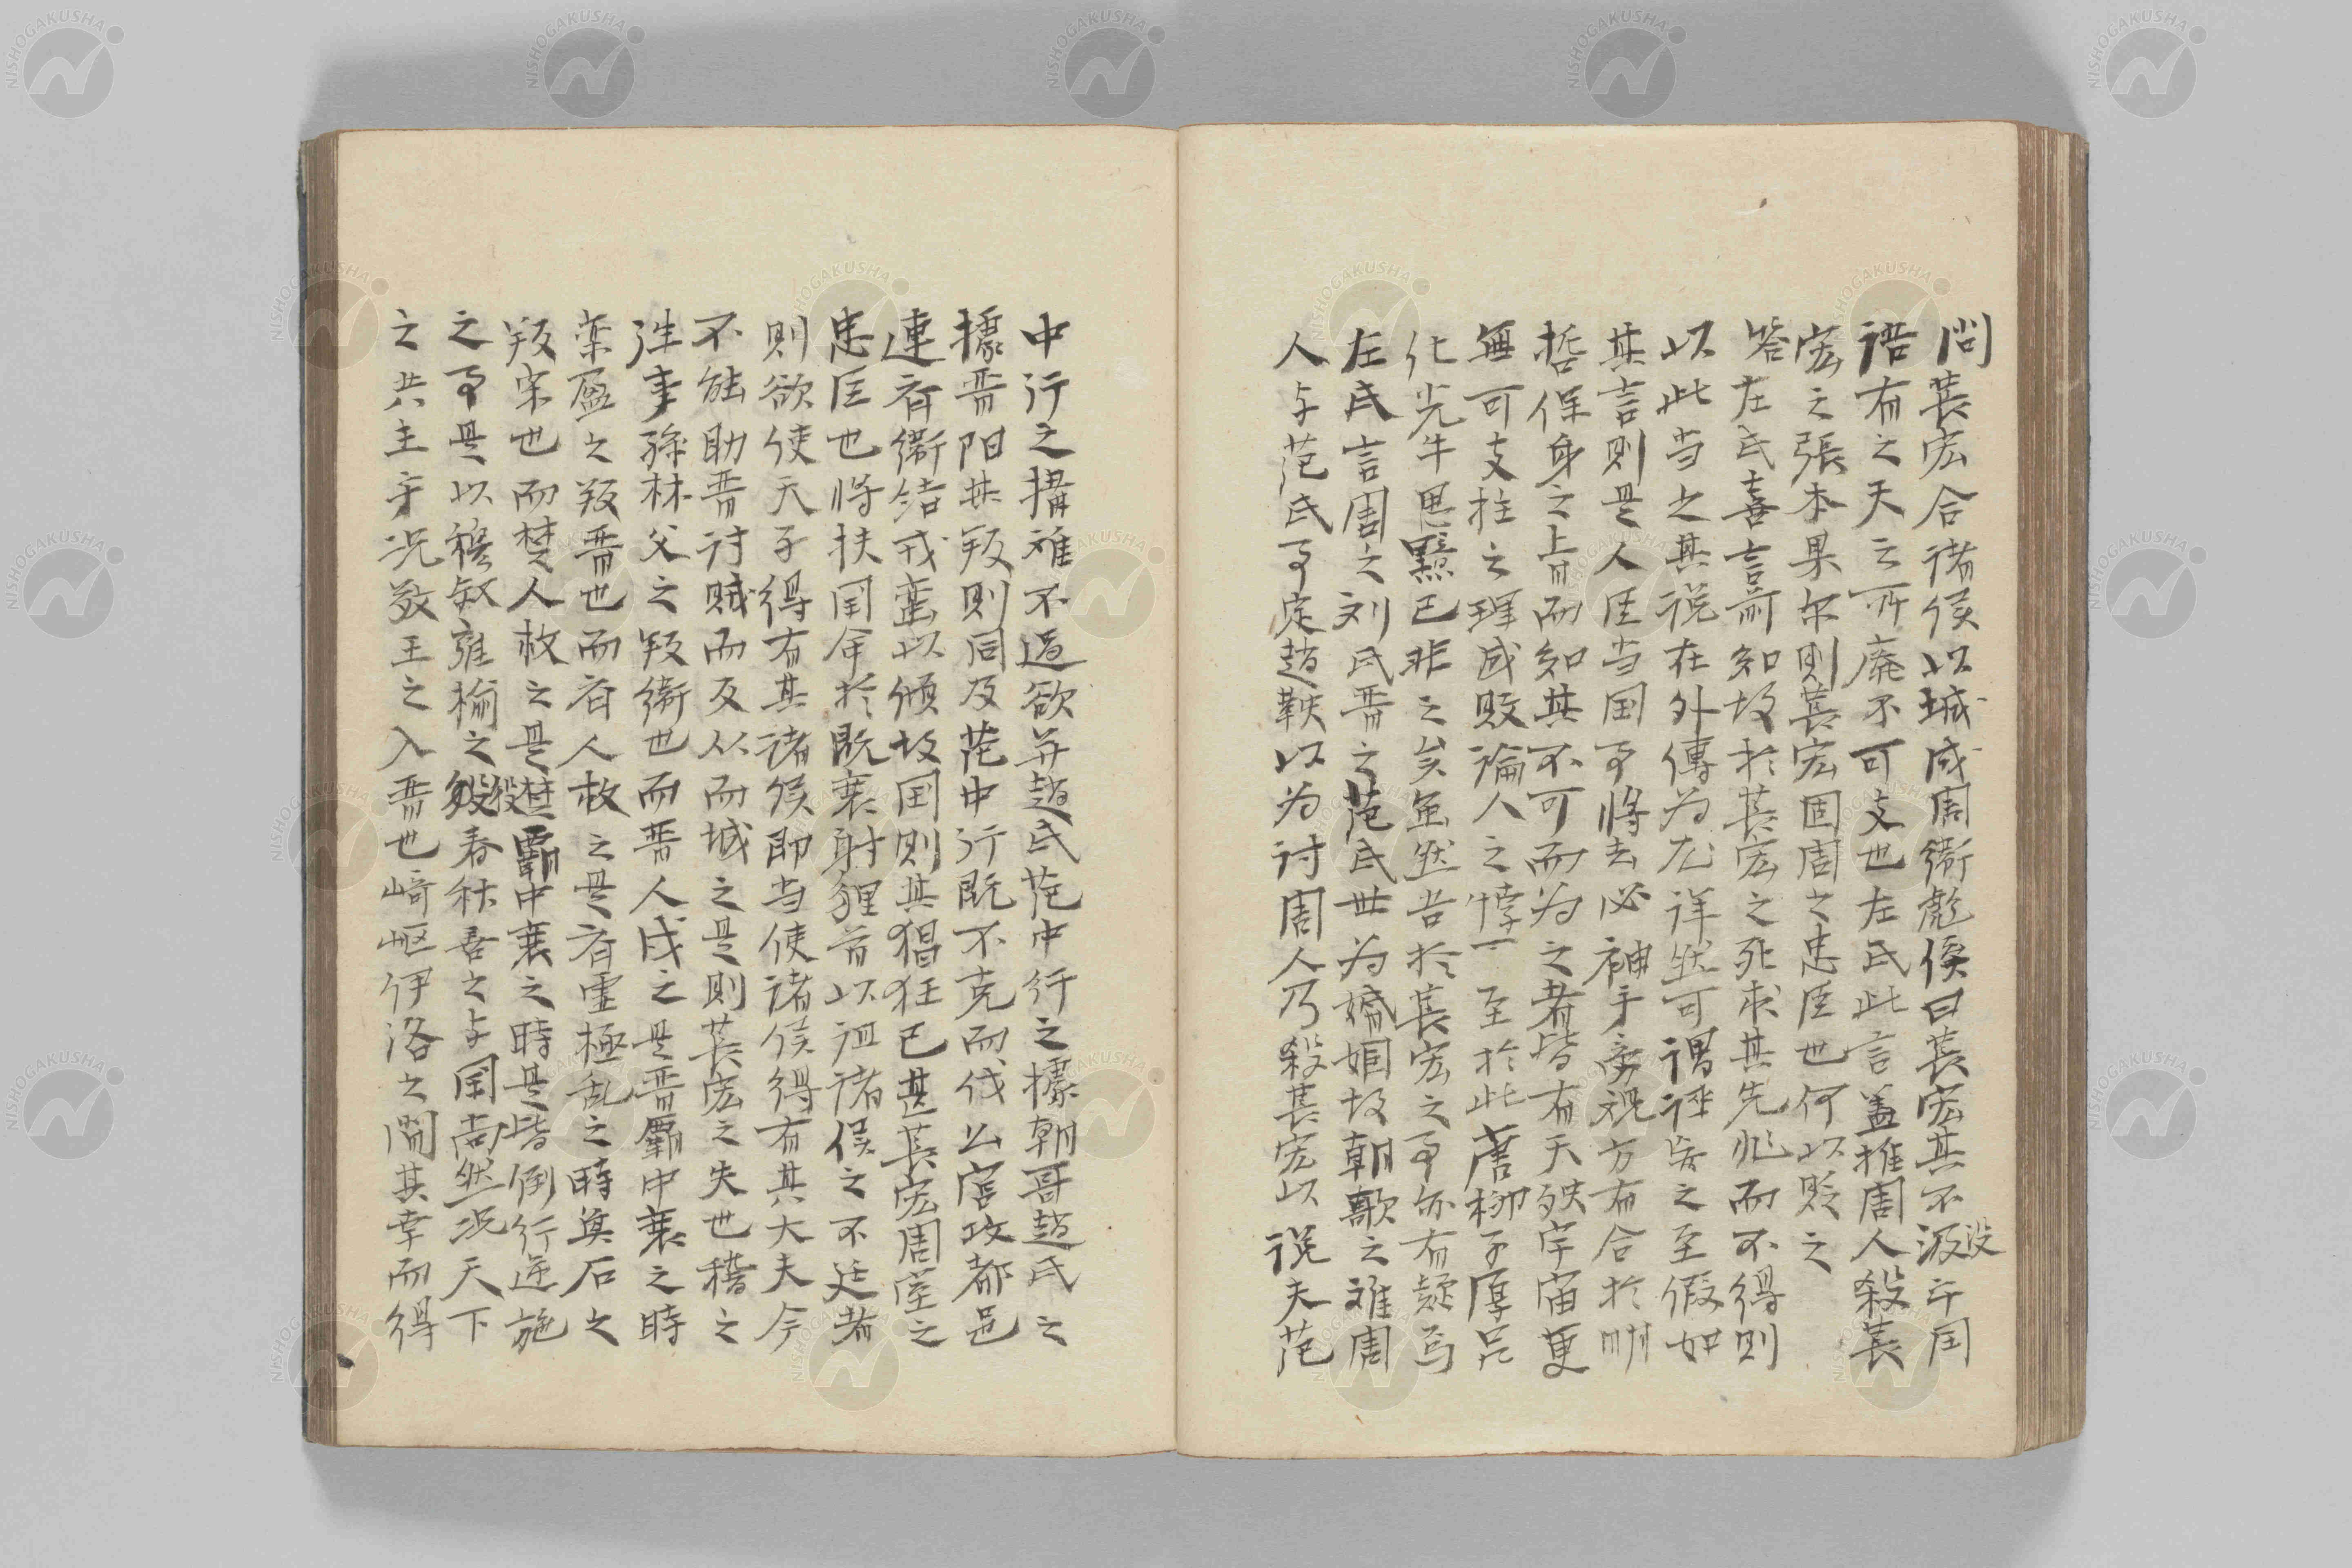 問萇宏合諸侯以城成周衞彪傒曰萇宏其不汲没乎国
語有之天之所廃不可支也左氏此言盖推周人殺萇
宏之張本果尔則萇宏固周之忠臣也何以貶之
答左氏喜言而知故於萇宏之死求其先兆而不得則
以此当之其説在外傳为尤詳然可謂誣妄之至假如
其言則是人臣当国事將去必袖手旁視方有合於明
哲保身之旨而知其不可而为之者皆有天殃宇宙更
無可支柱之理成敗論人之悖一至於此唐柳子厚呂
化光牛思黯已非之矣虽然吾於萇宏之事亦有疑焉
左氏言周之刘氏晋之范氏世为婚姻故朝歌之难周
人与范氏事定趙鞅以为讨周人乃殺萇宏以説夫范
中行之搆难不過欲并趙氏范中行之據朝哥趙氏之
據晋阳其叛則同及范中行既不克而伐公宫攻都邑
連齐衞结戎蛮以傾故国則其猖狂已甚萇宏周室之
忠臣也将扶国命於既衰射貍首以诅诸侯之不廷者
則欲使天子得有其诸侯即当使诸侯得有其大夫今
不能助晋讨贼而反从而城之是則萇宏之失也稽之
往事孫林父之叛衞也而晋人戍之是晋霸中衰之時
栾盈之叛晋也而齐人救之是齐霊極乱之時奠石之
叛宋也而楚人救之是楚霸中衰之時是皆倒行逆施
之事是以穆叔雍榆之毅救春秋善之与国尚然况天下
之共主乎况敬王之入晋也崎岖伊洛之間其幸而得